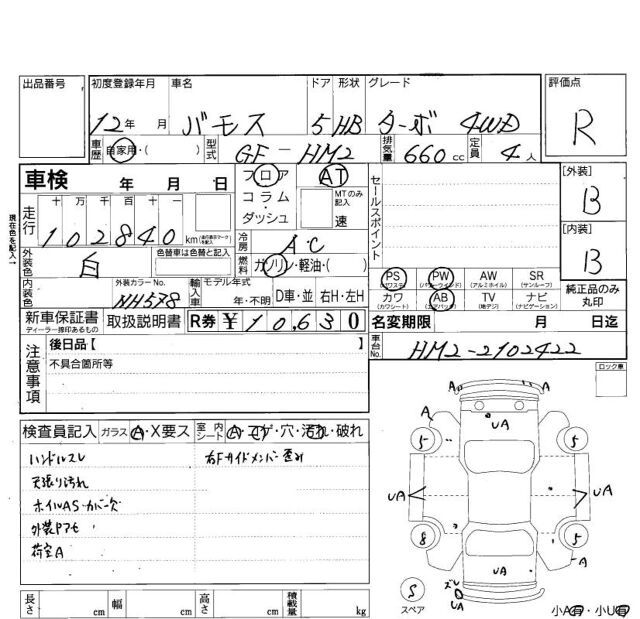 出品番号 初度登録年月 車名 ドア 形状 グレード 評価点
12年 月 バモス 5 HB ターボ 4WD R
車歴 自家用・( ) 型式 GF-HM2 排気量 660cc 定員 4人
車検 年 月 日 フロア AT [外装]
現在色を記入→
走行 十 万 千 百 十 コラム・ MTのみ記入 セールスポイント B
102840 km (走行表示マークを記入) ダッシュ 速 [内装]
外装色 白 色替車は色替と記入 冷房 A・C B
燃料 ガソリン・軽油・( )
内装色 外装カラーNo. NH578 輸入車 モデル年式 年・不明 D車・並 右H・左H
PS (パワステ) PW (パワーウインド) AW (アルミホイル) SR (サンルーフ) 純正品のみ丸印
カワ (カワシート) AB (エアバッグ) TV (地デジ) ナビ (ナビゲーション)
新車保証書 ディーラー捺印あるもの 取扱説明書 R券 ¥10,630 名変期限 月 日迄
注意事項 後日品【 】 車台No. HM2-2102422
不具合箇所等 ロック車
検査員記入 ガラス A・X要ス 室内シート A・コゲ・穴・汚れ・破れ
ハンドルスレ 右Fサイドメンバー歪み
天張り汚れ
ホイルAS・カバー欠
外装Pアセ
荷室A
A A
UA
A
5 5
UA UA
8 5
UA A
S ズレ
スペア UA
小A有・小U有
長さ cm 幅 cm 高さ cm 積載量 kg